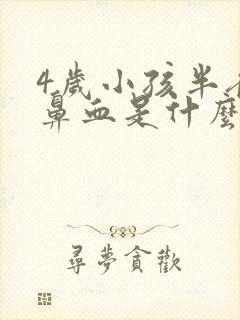 4歲小孩半
鼻血是什麼
尋夢貪歡